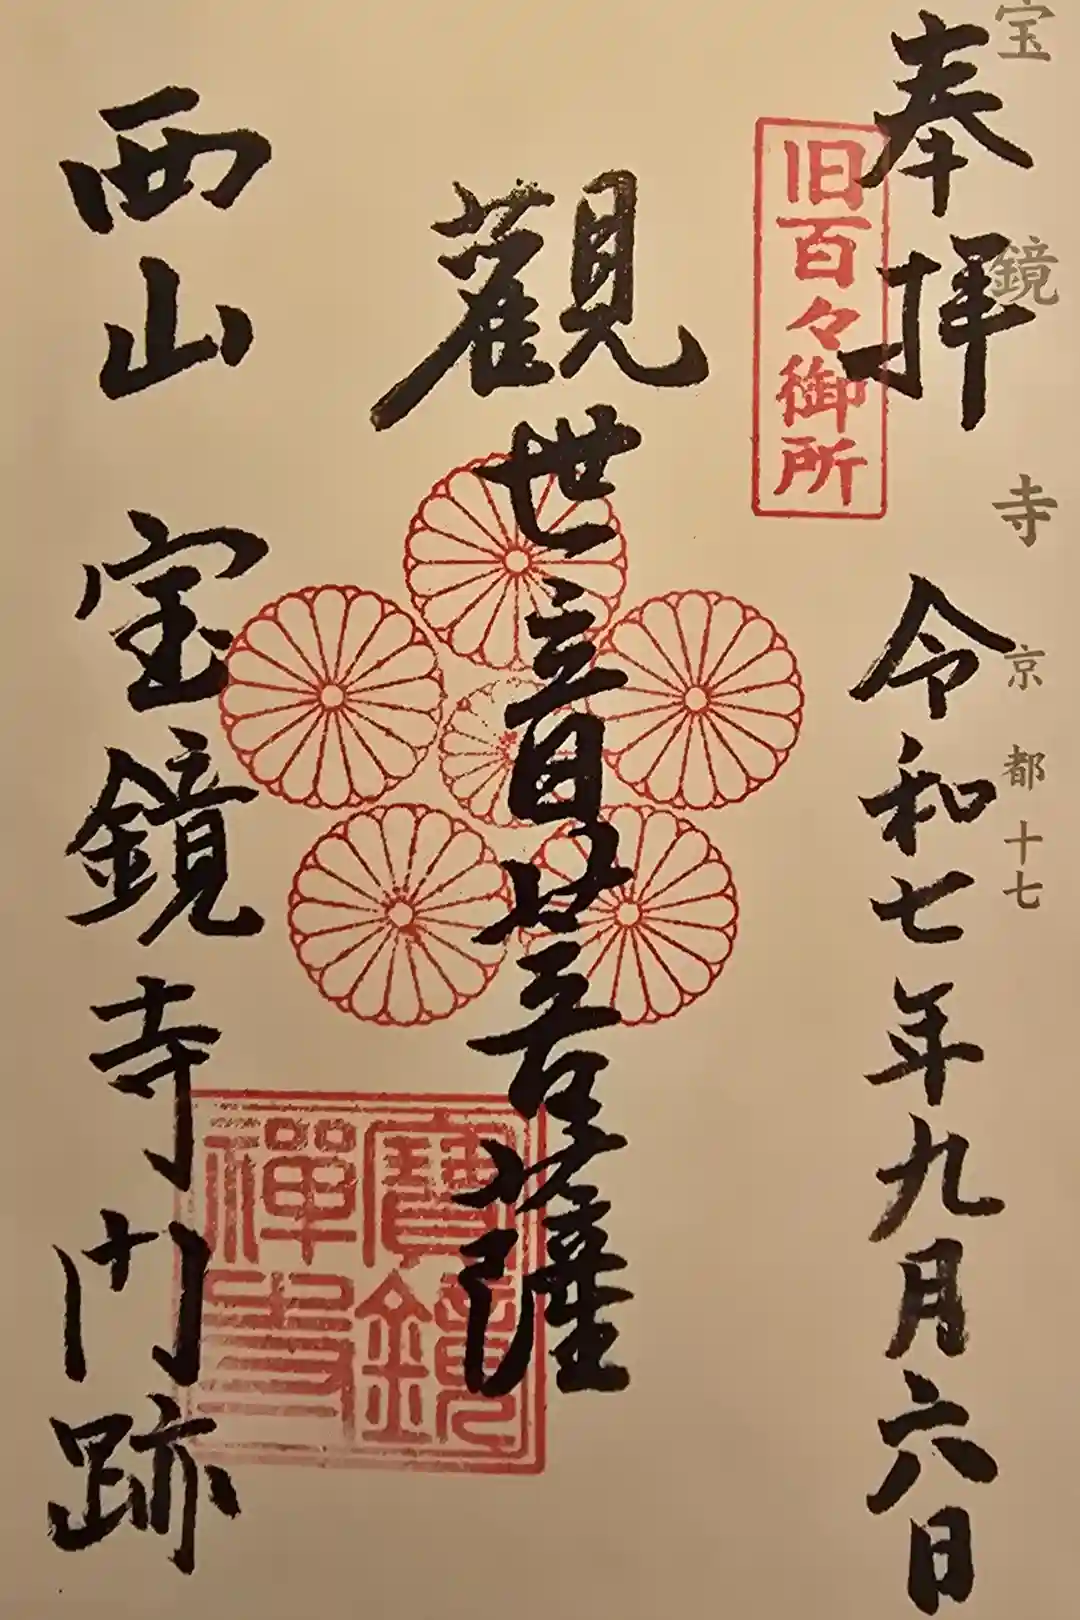 宝鏡寺 京都十七
奉拝 令和七年九月六日
旧百々御所
觀世音菩薩
寶鏡
禅寺
西山 宝鏡寺門跡